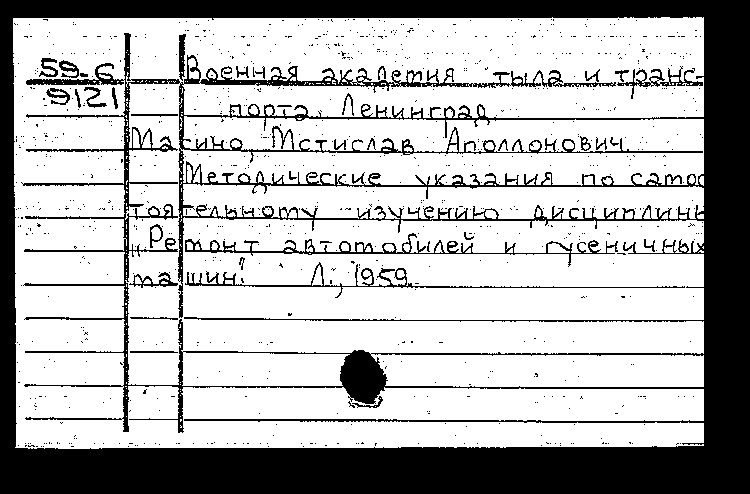 59-6
9121
Военная академия тыла и транс-
порта. Ленинград.
Масино, Мстислав Аполлонович.
Методические указания по самос
тоятельному изучению дисциплины
"Ремонт автомобилей и гусеничных
машин". Л., 1959.